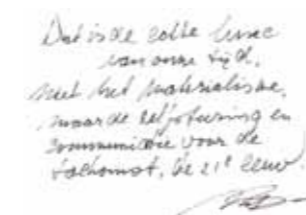 Dat is de echte luxe
van onze tijd,
niet het materialisme,
maar de zelfsturing en
communicatie voor de
toekomst, de 21e eeuw.